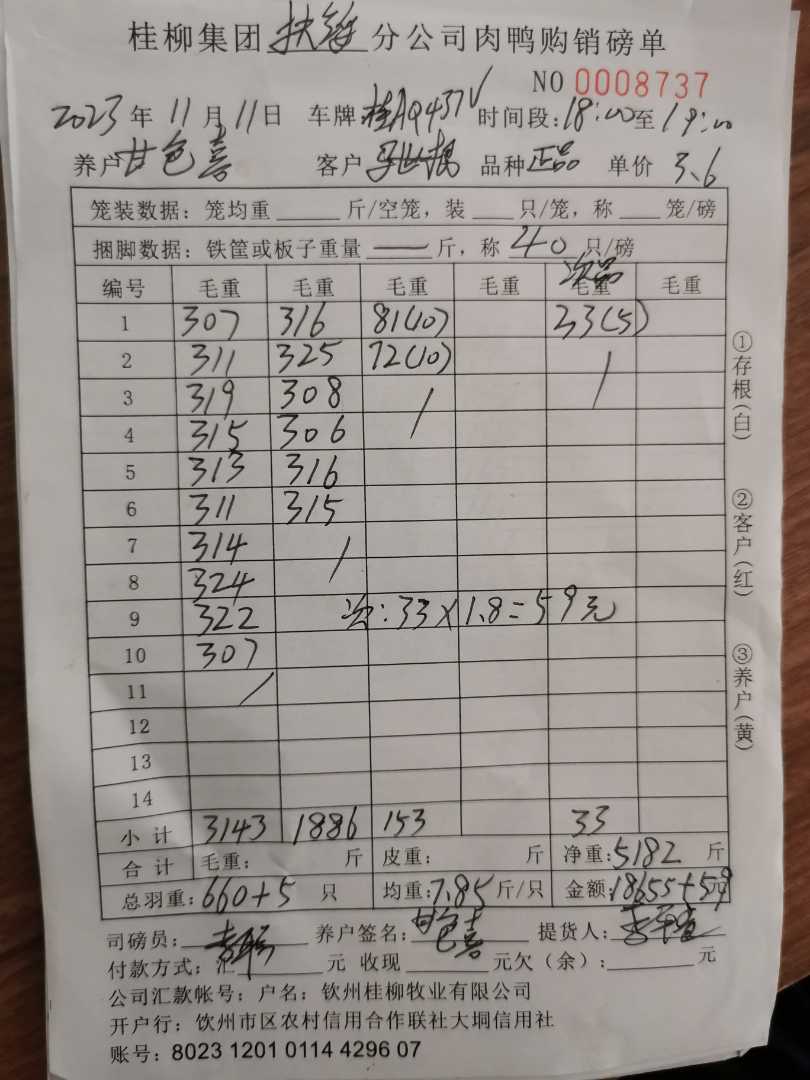 桂柳集团扶绥分公司肉鸭购销磅单
NO 0008737
2023年11月11日 车牌桂AQ437V 时间段:18:00至19:00
养户甘色喜 客户 品种正品 单价 3.6
笼装数据: 笼均重____斤/空笼, 装___只/笼, 称___笼/磅
捆脚数据: 铁筐或板子重量 — 斤, 称 40 只/磅
次品
编号 毛重 毛重 毛重 毛重 毛重 毛重
1 307 316 81(10) 33(5)
2 311 325 72(10) /
3 319 308 /
4 315 306
5 313 316
6 311 315
7 314 /
8 324
9 322 次:33×1.8=59元
10 307
11 /
12
13
14
小计 3143 1886 153 33
合计 毛重: 斤 皮重: 斤 净重:5182 斤
总羽重:660+5 只 均重:7.85斤/只 金额:18655+59
司磅员: 养户签名:甘色喜 提货人:
付款方式: 汇____元 收现____元欠(余):____元
公司汇款帐号: 户名: 钦州桂柳牧业有限公司
开户行: 钦州市区农村信用合作联社大垌信用社
账号: 8023 1201 0114 4296 07
①存根(白)
②客户(红)
③养户(黄)